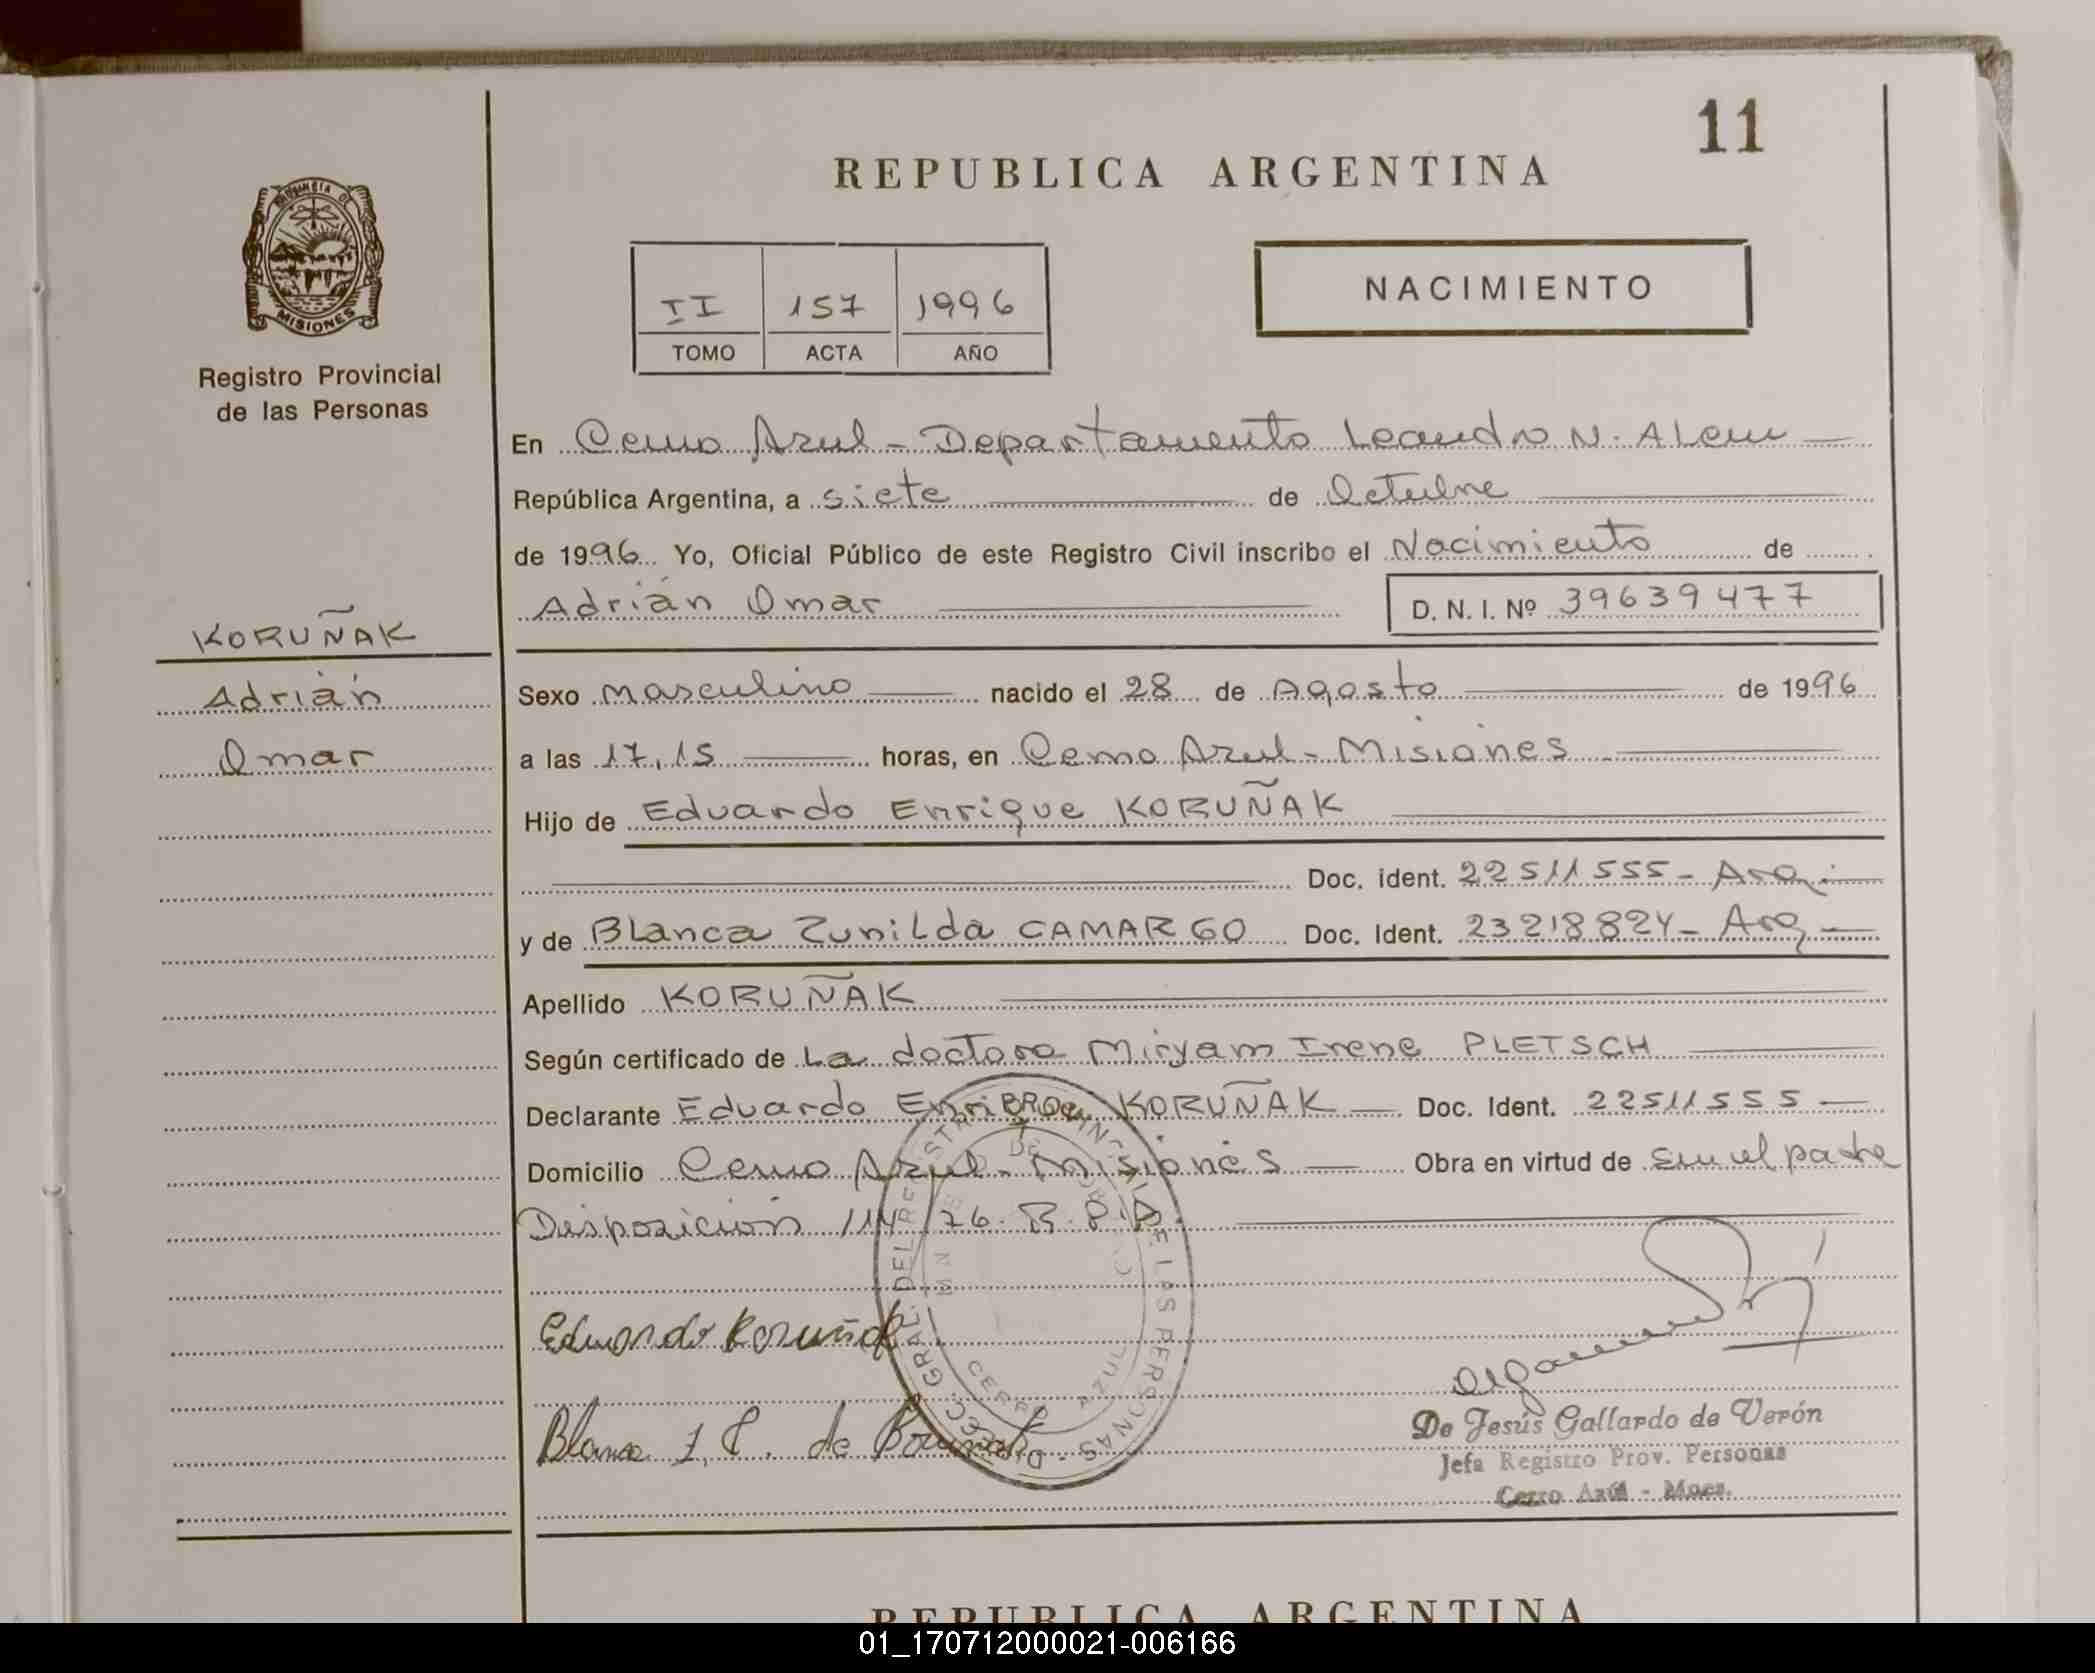 11
REPUBLICA ARGENTINA
PROVINCIA DE
MISIONES
Registro Provincial
de las Personas
II 157 1996
TOMO ACTA AÑO
NACIMIENTO
En Cerro Azul - Departamento Leandro N. ALem
República Argentina, a siete de Octubre
de 1996 Yo, Oficial Público de este Registro Civil inscribo el Nacimiento de
Adrián Omar D. N. I. Nº 39639477
KORUÑAK
Adrián
Omar
Sexo masculino nacido el 28 de Agosto de 1996
a las 17,15 horas, en Cerro Azul - Misiones
Hijo de Eduardo Enrique KORUÑAK
Doc. ident. 22511555 - Arg.
y de BLanca ZuniLda CAMARGO Doc. Ident. 23218824 - Arg
Apellido KORUÑAK
Según certificado de La doctora Miryam Irene PLETSCH
Declarante Eduardo Enrique KORUÑAK Doc. Ident. 22511555
Domicilio Cerro Azul - Misiones Obra en virtud de ser el padre
Disposición 114/76. R.P.P.
Eduardo Koruñak
Blanca Z. C. de Koruñak
DIREC. GRAL. DEL REGISTRO PROVINCIAL DE LAS PERSONAS
CERRO AZUL
De Jesús Gallardo de Verón
Jefa Registro Prov. Personas
Cerro Azul - Mnes.
REPUBLICA ARGENTINA
01_170712000021-006166